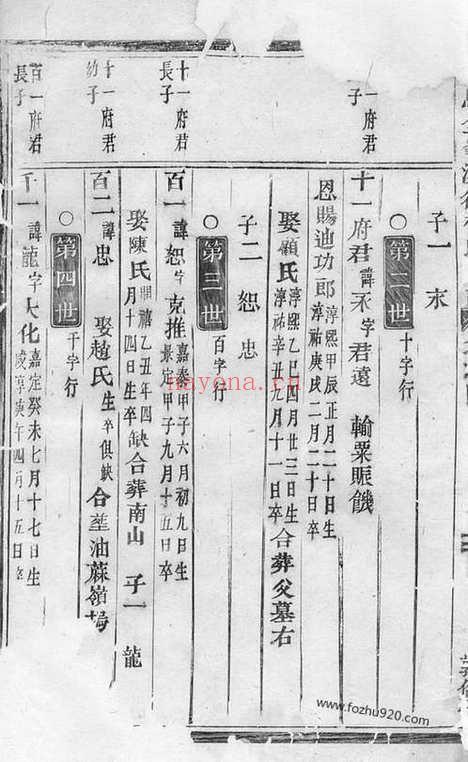 子一 永
第二世 十字行
一府君
子
十一府君諱永字君遠 輸粟賑饑
恩賜迪功郎淳熙甲辰正月二十日生
淳祐庚戌二月二十日卒
娶顧氏淳熙乙巳四月廿三日生
淳祐辛丑九月十一日卒合葬父墓右
子二 恕 忠
第三世 百字行
十一府君
長子
百一諱恕字克推嘉泰甲子六月初九日生
景定甲子九月十五日卒
娶陳氏開禧乙丑年四
月十四日生卒缺合葬南山 子一 龍
十一府君
幼子
百二諱忠 娶趙氏生卒俱缺合塟油蔴嶺
第四世 千字行
百一府君
長子
千一諱龍字大化嘉定癸未七月十七日生
咸淳庚午四月十五日卒
nayona.cn
www.fozhu920.com